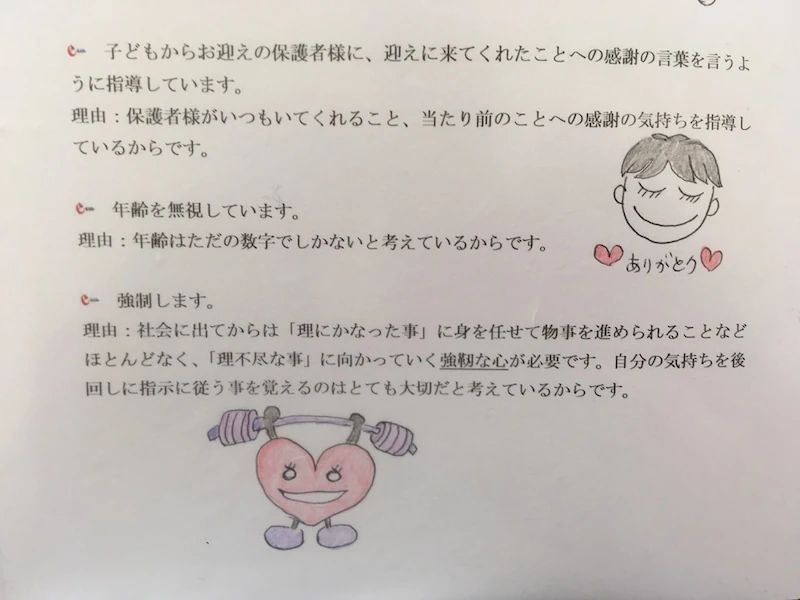 e- 子どもからお迎えの保護者様に、迎えに来てくれたことへの感謝の言葉を言うよ
うに指導しています。
理由：保護者様がいつもいてくれること、当たり前のことへの感謝の気持ちを指導し
ているからです。
e- 年齢を無視しています。
理由：年齢はただの数字でしかないと考えているからです。
ありがとう
e- 強制します。
理由：社会に出てからは「理にかなった事」に身を任せて物事を進められることなど
ほとんどなく、「理不尽な事」に向かっていく強靭な心が必要です。自分の気持ちを後
回しに指示に従う事を覚えるのはとても大切だと考えているからです。